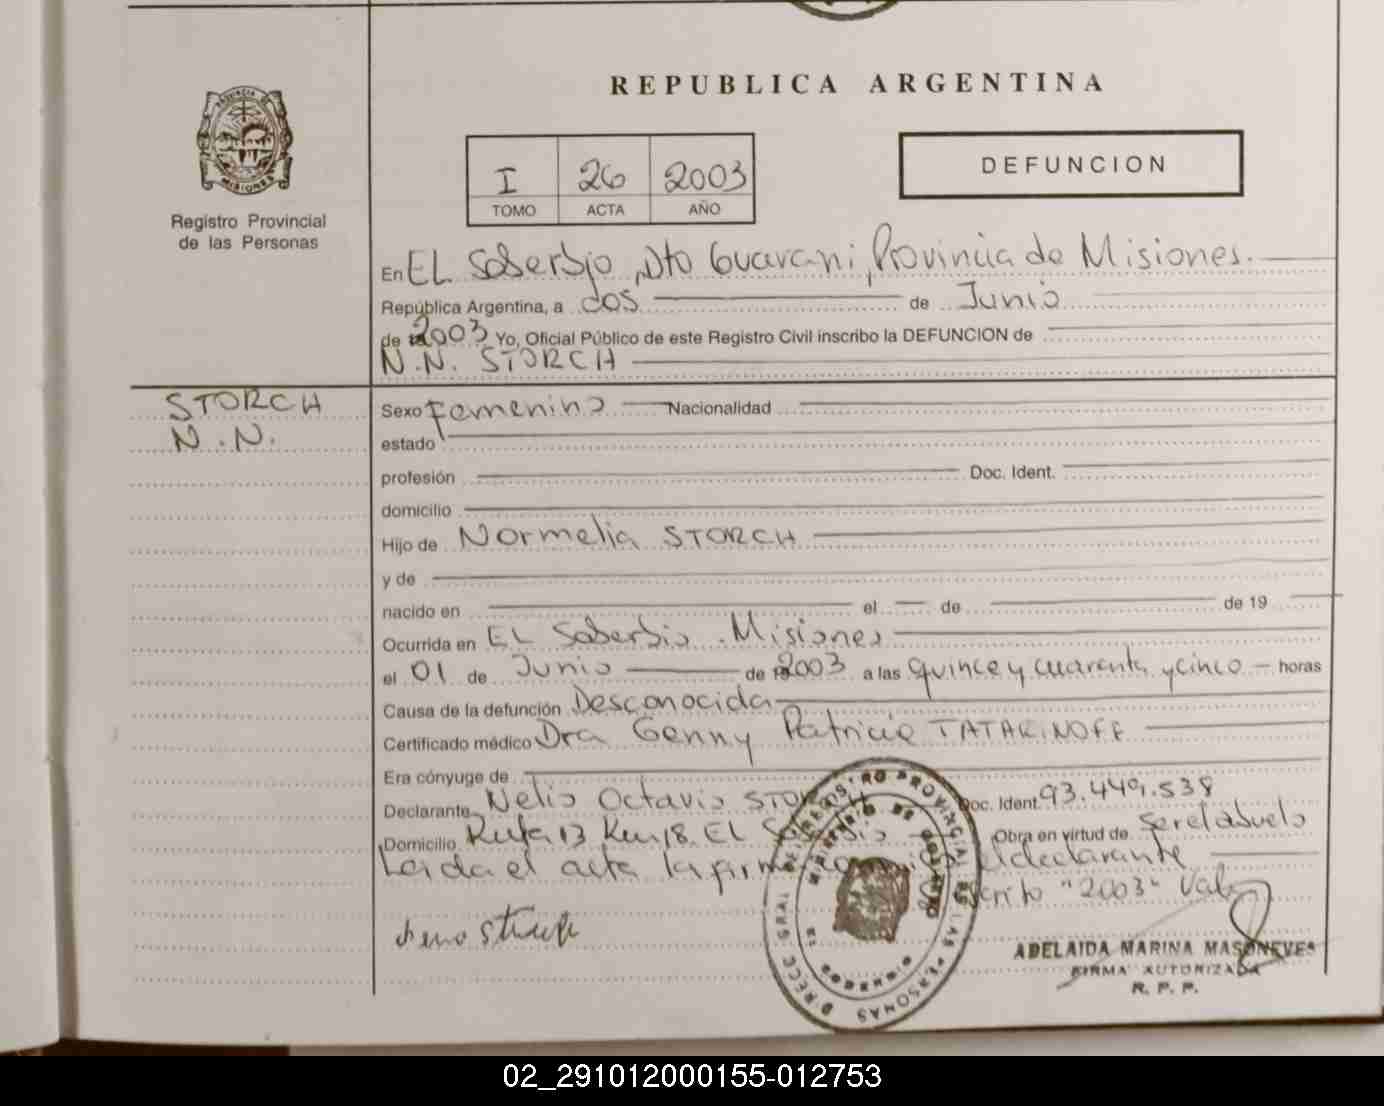 REPUBLICA ARGENTINA
PROVINCIA DE
MISIONES
Registro Provincial
de las Personas
I 26 2003
TOMO ACTA AÑO
DEFUNCION
En EL Soberbio, Dto Guarani, Provincia de Misiones.
República Argentina, a dos de Junio
de 2003 Yo, Oficial Público de este Registro Civil inscribo la DEFUNCION de
N.N. STORCH
STORCH
N.N.
Sexo Femenino Nacionalidad
estado
profesión Doc. Ident.
domicilio
Hijo de Normelia STORCH
y de
nacido en el de de 19
Ocurrida en EL Soberbio. Misiones
el 01 de Junio de 2003 a las quince y cuarenta y cinco horas
Causa de la defunción Desconocida
Certificado médico Dra Genny Patricia TATARINOFF
Era cónyuge de
Declarante Nelio Octavio STORCH Doc. Ident. 93.449.538
Domicilio Ruta 13 Km 18. EL Soberbio Obra en virtud de Ser el abuelo
Leida el acta la firma el declarante
"2003" Vale
ADELAIDA MARINA MASONEVES
FIRMA AUTORIZADA
R. P. P.
02_291012000155-012753